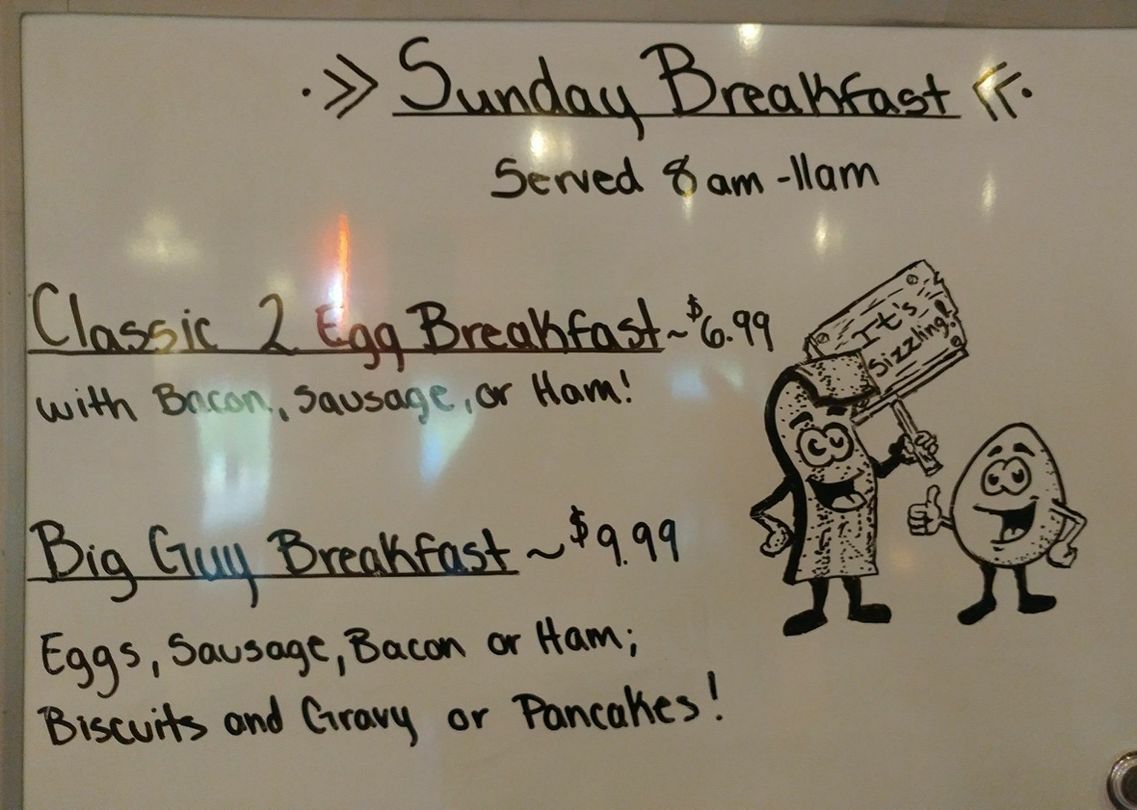 Sunday Breakfast
Served 8am-11am
Classic 2 Egg Breakfast ~ $6.99
with Bacon, Sausage, or Ham!
It's
Sizzling!
Big Guy Breakfast ~ $9.99
Eggs, Sausage, Bacon or Ham;
Biscuits and Gravy or Pancakes!